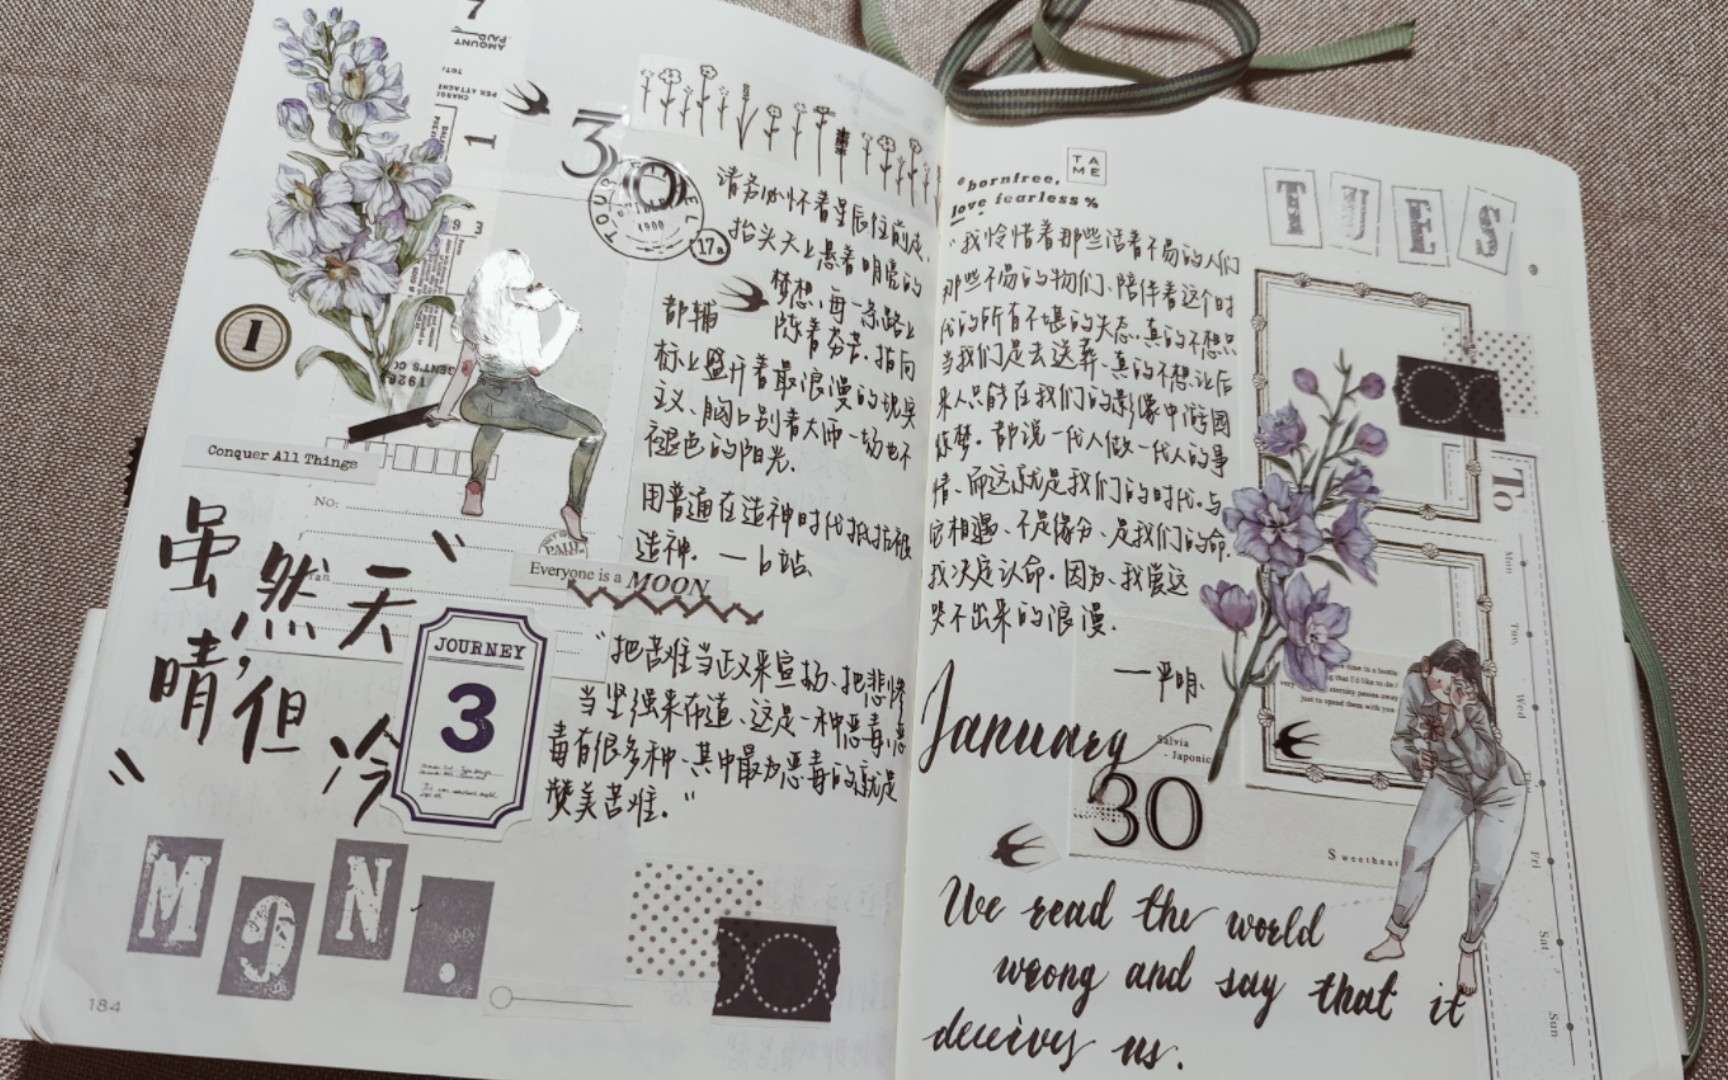 7
AMOUNT
PAID
1
30
1900
17a
请务必怀着星辰往前走、
抬头天上悬着明亮的
梦想、每一条路上
都铺 陈着芬芳、指向
标上盛开着最浪漫的现实
主义、胸口别着大师一场也不
褪色的阳光.
用普通在造神时代抵抗被
造神. —b站、
1
1928
Conquer All Things
NO:
PAID
Everyone is a MOON
虽然天
晴,但
冷
JOURNEY
3
"把苦难当正义来宣扬、把悲惨
当坚强来布道、这是一种恶毒、恶
毒有很多种、其中最为恶毒的就是
赞美苦难."
MON.
184
TAME
bornfree,
love fearless %
TUES.
"我怜惜着那些活着不易的人们
那些不易的物们、陪伴着这个时
代的所有不堪的失态、真的不想只
当我们是去送葬、真的不想让后
来人只能在我们的影像中游园
惊梦. 都说一代人做一代人的事
情、而这就是我们的时代、与
它相遇、不是缘分、是我们的命.
我决定认命. 因为、我尝这
哭不出来的浪漫.
—严明、
January
Salvia
- Japonic
30
time in a bottle
that I'd like to do
eternity passes away
just to spend them with you
Sweetheart
To
Mon
Tue.
Wed
Fri
Sat
Sun
We read the world
wrong and say that it
deceives us.